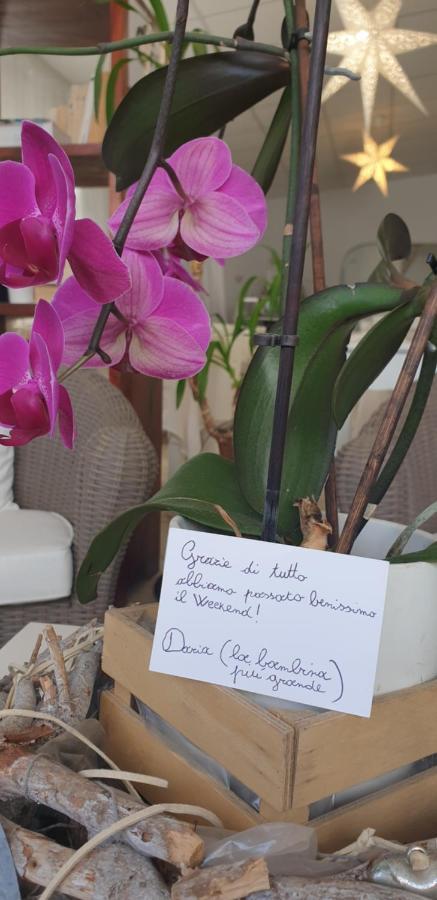 Grazie di tutto
abbiamo passato benissimo
il Weekend!
Daria (la bambina
più grande)